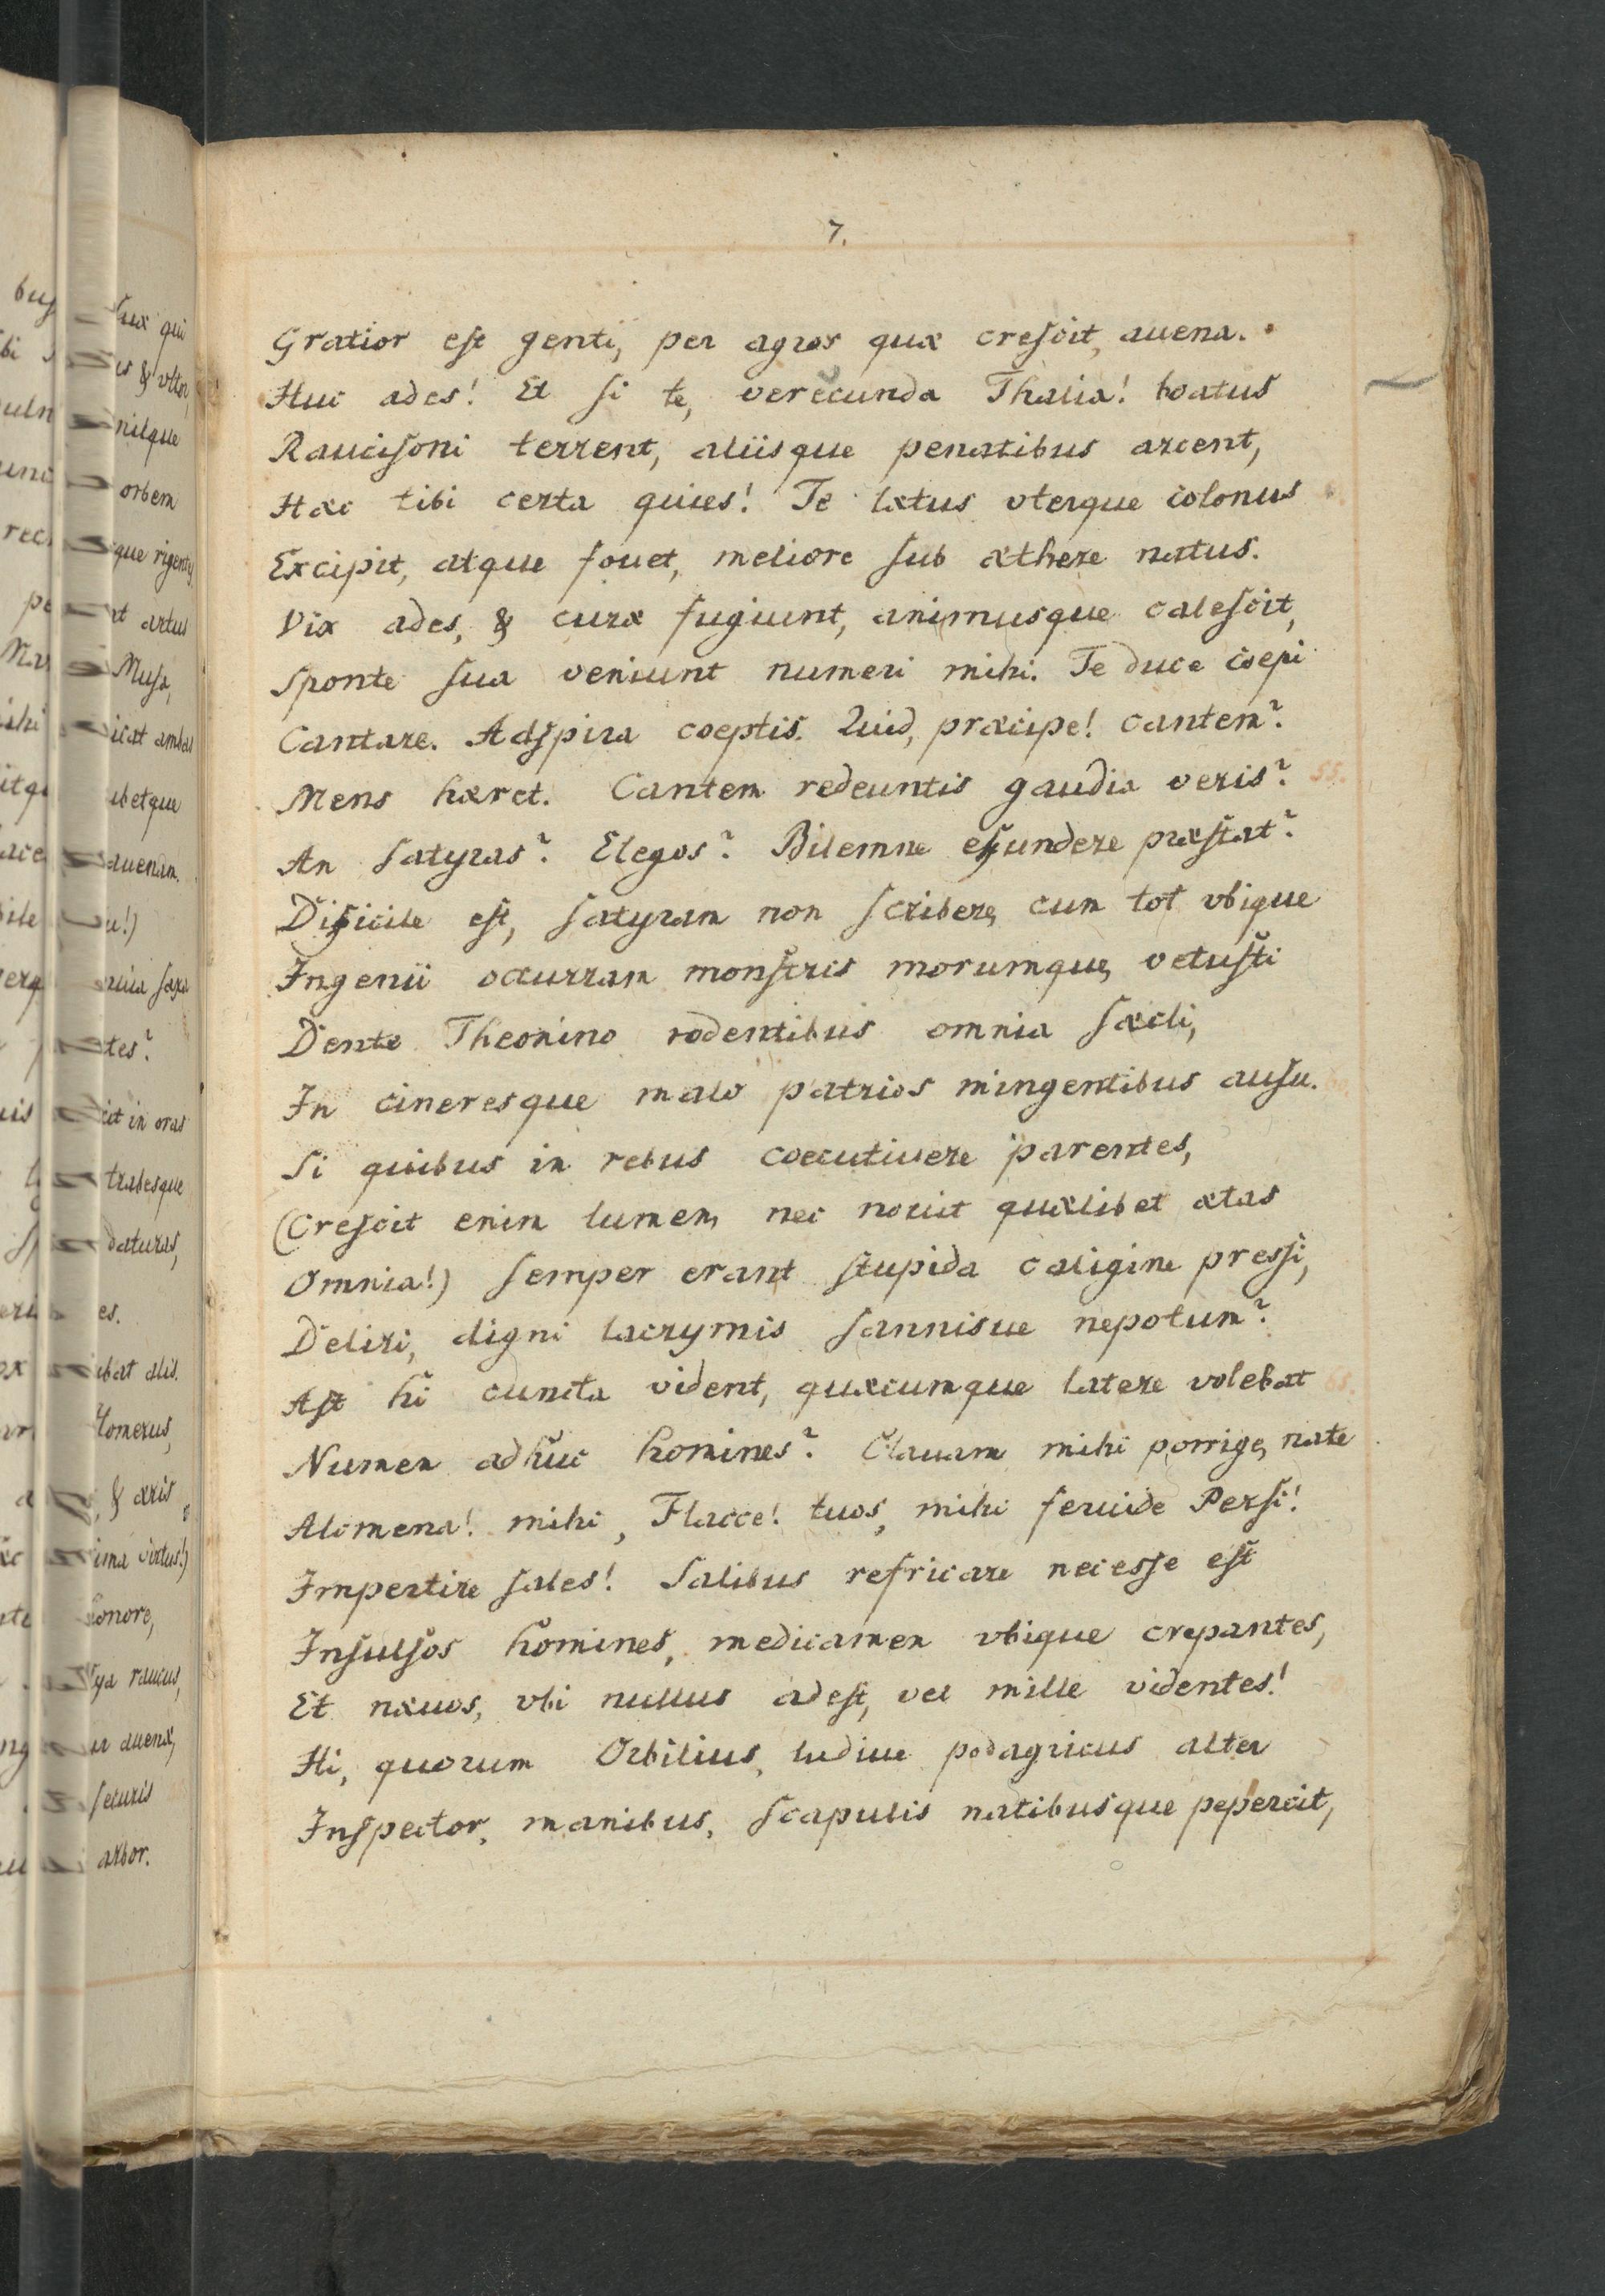 7.
Gratior est genti, per agros quæ crescit, auena.
Huc ades! Et si te, verecunda Thalia! boatus
Raucisoni terrent, aliisque penatibus arcent,
Hæc tibi certa quies! Te lætus vterque colonus
Excipit, atque fouet, meliore sub æthere natus.
Vix ades, & curæ fugiunt, animusque calescit,
Sponte sua veniunt numeri mihi. Te duce coepi
Cantare. Adspira coeptis. Quid, præcipe! cantem?
Mens hæret. Cantem redeuntis gaudia veris? 55.
An satyras? Elegos? Bilemne effundere præstat?
Difficile est, satyram non scribere, cum tot vbique
Ingenii occurram monstris morumque, vetusti
Dente Theonino rodentibus omnia sæcli,
In cineresque malo patrios mingentibus ausu.
Si quibus in rebus coecutiuere parentes,
(Crescit enim lumen, nec nouit quælibet ætas
Omnia!) semper erant stupida caligine pressi,
Deliri, digni lacrymis sannisue nepotum?
Ast hi cuncta vident, quæcumque latere volebat 65.
Numen adhuc homines? Clauam mihi porrige, nate
Alcmena! mihi, Flacce! tuos, mihi feruide Persi!
Impertire sales! Salibus refricare necesse est
Insulsos homines, medicamen vbique crepantes,
Et næuos, vbi nullus adest, vel mille videntes!
Hi, quorum Orbilius, ludiue podagricus alter
Inspector, manibus, scapulis natibusque pepercit,
orbem
Musa,
auenam.
trabesque
daturas,
arbor.